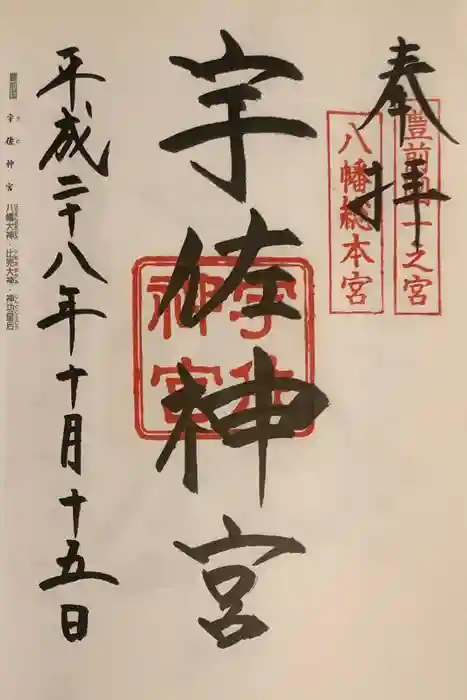 奉拝
豊前國一之宮
八幡総本宮
宇佐神宮
宇佐神宮
平成二十八年十月十五日
豊前国 宇佐神宮 八幡大神・比売大神・神功皇后